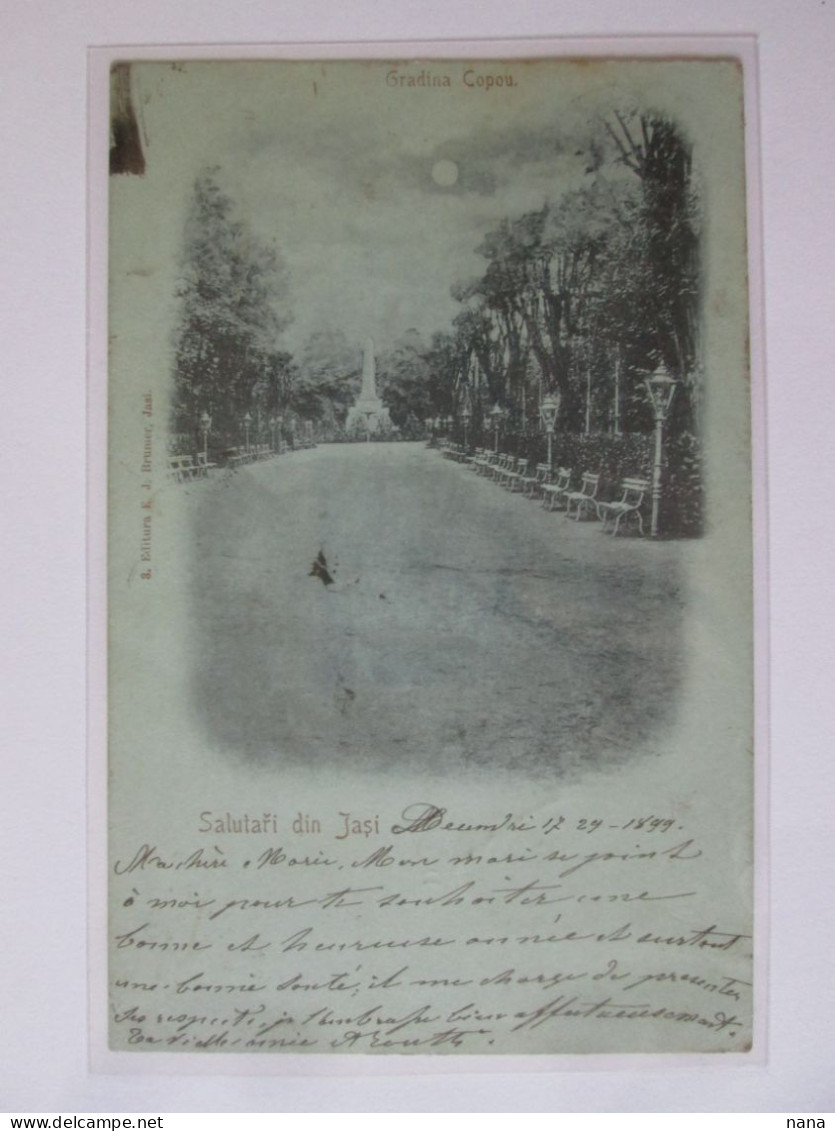 Gradina Copou.
3. Editura E. J. Brumer, Jasi.
Salutări din Jaşi
17 29 - 1899.
Ma chère Marie, Mon mari se joint
à moi pour te souhaiter une
bonne et heureuse année et surtout
une bonne santé, il me charge de presenter
ses respects, je t'embrasse bien affectueusement.
Ta vieille amie
nana